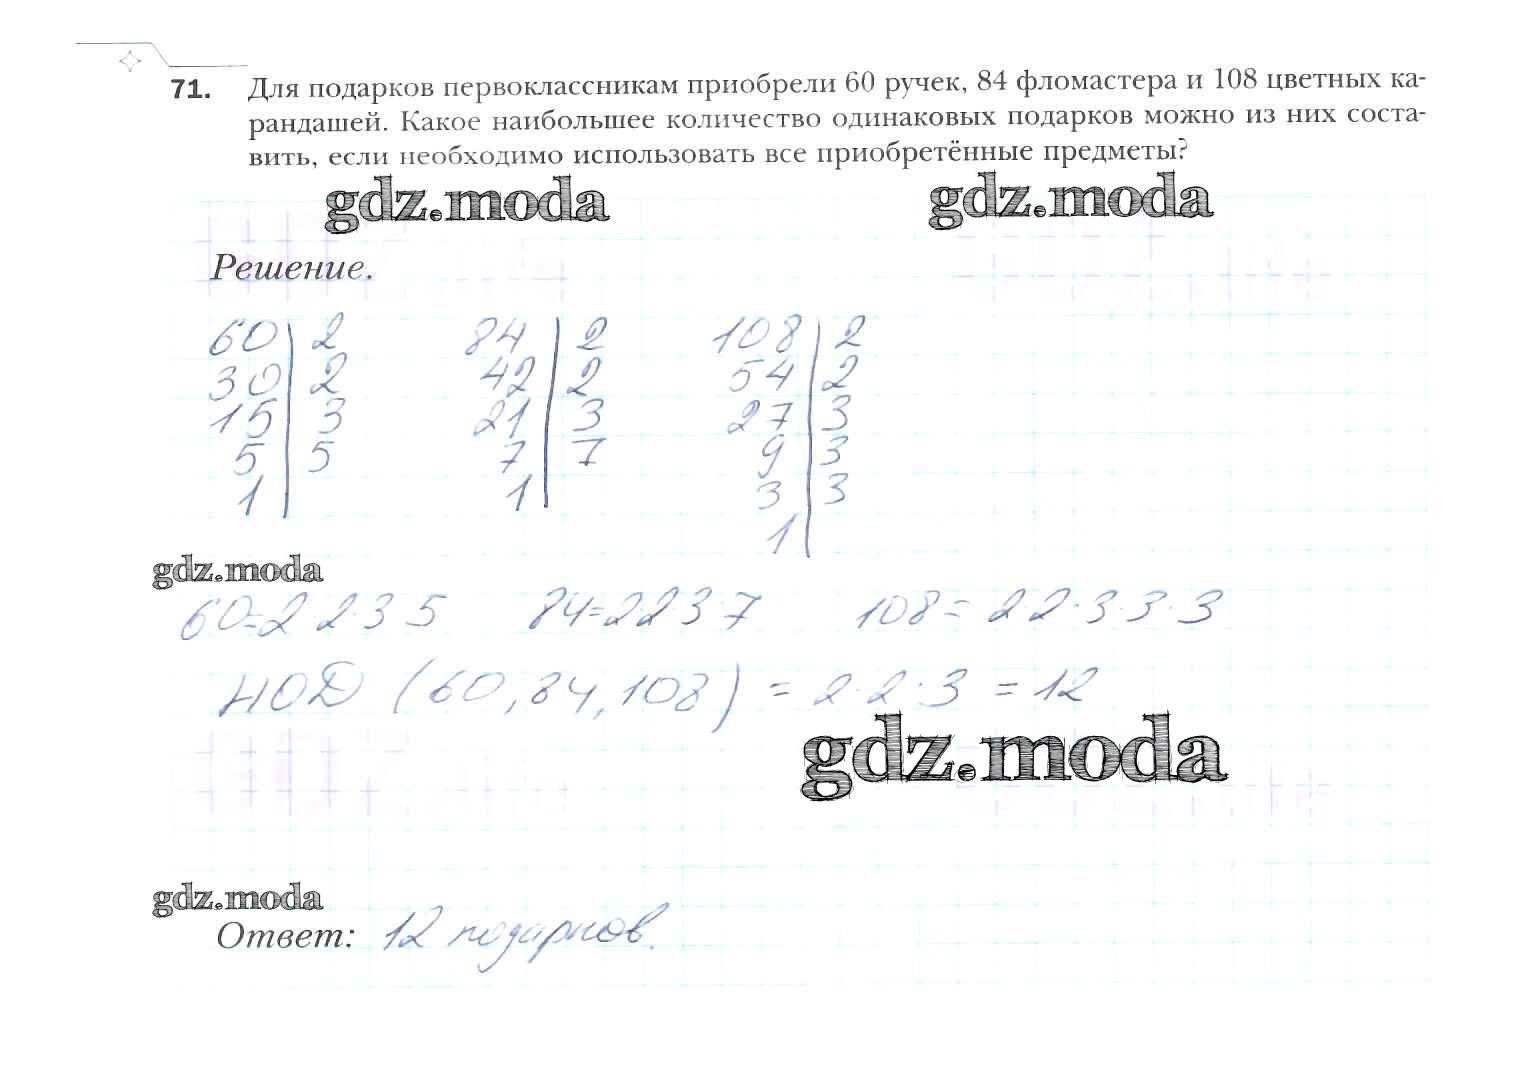 71. Для подарков первоклассникам приобрели 60 ручек, 84 фломастера и 108 цветных ка-
рандашей. Какое наибольшее количество одинаковых подарков можно из них соста-
вить, если необходимо использовать все приобретённые предметы?
gdz.moda gdz.moda
Решение.
60 | 2 84 | 2 108 | 2
30 | 2 42 | 2 54 | 2
15 | 3 21 | 3 27 | 3
5 | 5 7 | 7 9 | 3
1 | 1 | 3 | 3
1 |
gdz.moda
60=2·2·3·5 84=2·2·3·7 108=2·2·3·3·3
НОД (60, 84, 108) = 2·2·3 = 12
gdz.moda
gdz.moda
Ответ: 12 подарков.